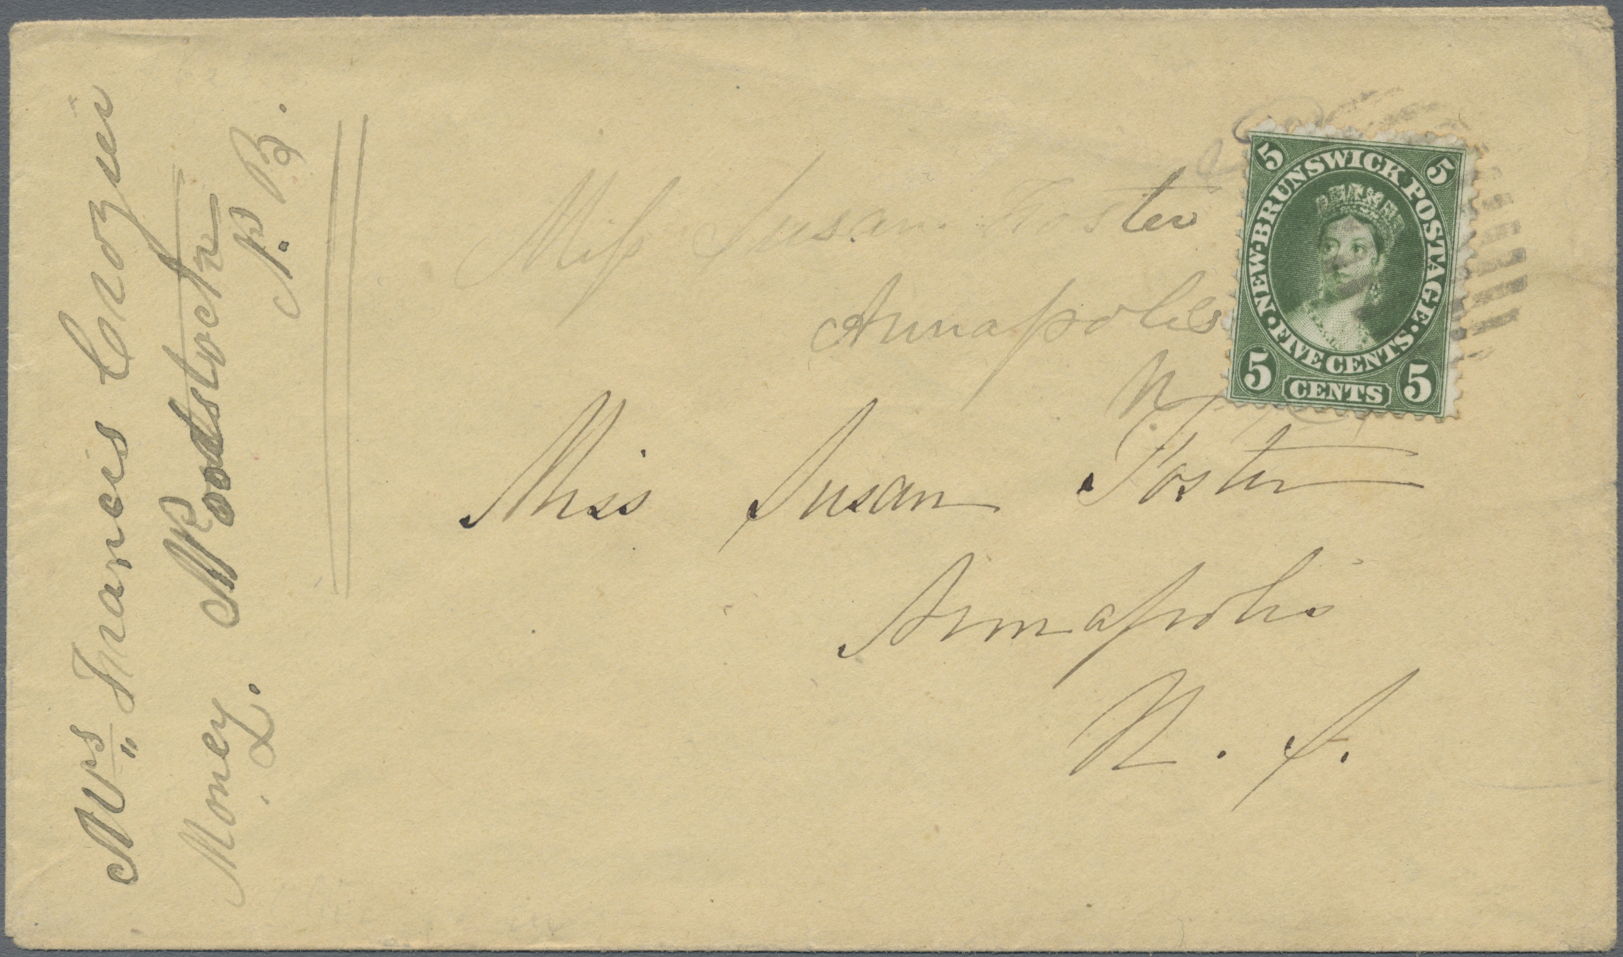 Mrs Francis Crozier
Woodstock
N. B.
Money L.
Miss Susan Foster
Annapolis
N
Miss Susan Foster
Annapolis
N. S.
5 5
NEW-BRUNSWICK POSTAGE
FIVE CENTS
5 CENTS 5